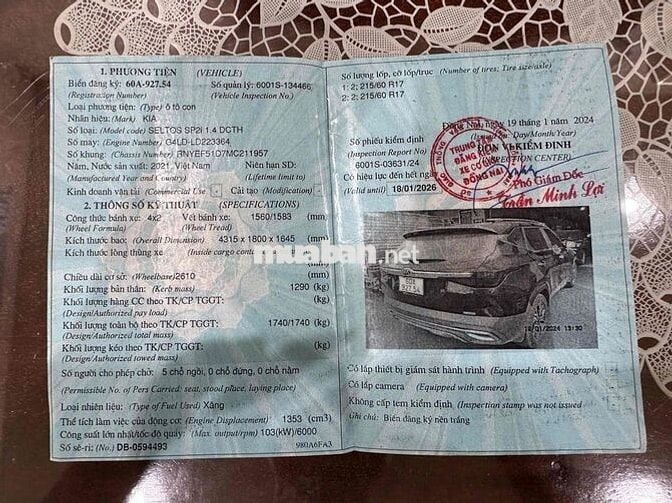 1. PHƯƠNG TIỆN (VEHICLE)
Biển đăng ký: 60A-927.54 Số quản lý: 6001S-134466
(Registration Number) (Vehicle Inspection No.)
Loại phương tiện: (Type) ô tô con
Nhãn hiệu: (Mark) KIA
Số loại: (Model code) SELTOS SP2I 1.4 DCTH
Số máy: (Engine Number) G4LD-LD223364
Số khung: (Chassis Number) RNYEF51D7MC211957
Năm, Nước sản xuất: 2021, Việt Nam Niên hạn SD:
(Manufactured Year and Country) (Lifetime limit to)
Kinh doanh vận tải (Commercial Use) - Cải tạo (Modification) -
2. THÔNG SỐ KỸ THUẬT (SPECIFICATIONS)
Công thức bánh xe: 4x2 Vết bánh xe: 1560/1583 (mm)
(Wheel Formula) (Wheel Tread)
Kích thước bao: (Overall Dimension) 4315 x 1800 x 1645 (mm)
Kích thước lòng thùng xe (Inside cargo
(mm)
Chiều dài cơ sở: (Wheelbase) 2610 (mm)
Khối lượng bản thân: (Kerb mass) 1290 (kg)
Khối lượng hàng CC theo TK/CP TGGT: (kg)
(Design/Authorized pay load)
Khối lượng toàn bộ theo TK/CP TGGT: 1740/1740 (kg)
(Design/Authorized total mass)
Khối lượng kéo theo TK/CP TGGT: (kg)
(Design/Authorized towed mass)
Số người cho phép chở: 5 chỗ ngồi, 0 chỗ đứng, 0 chỗ nằm
(Permissible No. of Pers Carried: seat, stood place, laying place)
Loại nhiên liệu: (Type of Fuel Used) Xăng
Thể tích làm việc của động cơ: (Engine Displacement) 1353 (cm3)
Công suất lớn nhất/tốc độ quay: (Max. output/rpm) 103(kW)/6000
Số sê-ri: (No.) DB-0594493 980A6FA3
Số lượng lốp, cỡ lốp/trục (Number of tires; Tire size/axle)
1: 2; 215/60 R17
2: 2; 215/60 R17
Đồng Nai, ngày 19 tháng 1 năm 2024
(Issued on: Day/Month/Year)
Số phiếu kiểm định ĐƠN VỊ KIỂM ĐỊNH
(Inspection Report No) (INSPECTION CENTER)
6001S-03631/24
Có hiệu lực đến hết ngày
(Valid until) 18/01/2026
TRUNG TÂM
ĐĂNG KIỂM
XE CƠ GIỚI
ĐỒNG NAI
Phó Giám Đốc
Trần Minh Lợi
muaban.net
60A
927.54
19/01/2024 13:30
Có lắp thiết bị giám sát hành trình (Equipped with Tachograph)
Có lắp camera (Equipped with camera)
Không cấp tem kiểm định (Inspection stamp was not issued
Ghi chú: Biển đăng ký nền trắng